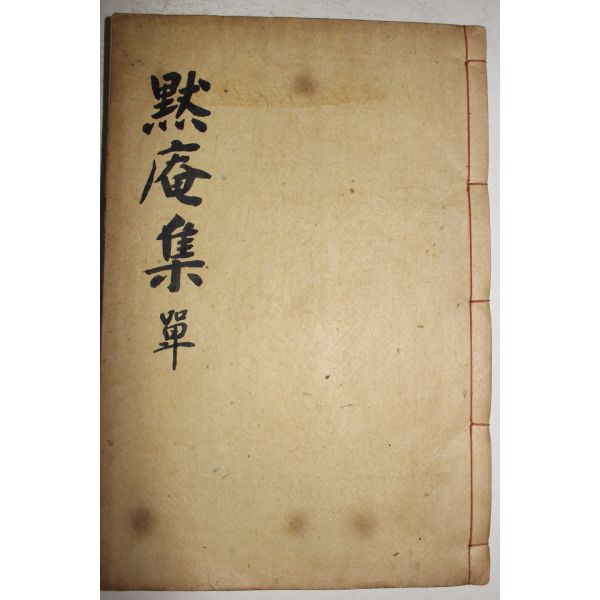 默庵集 單